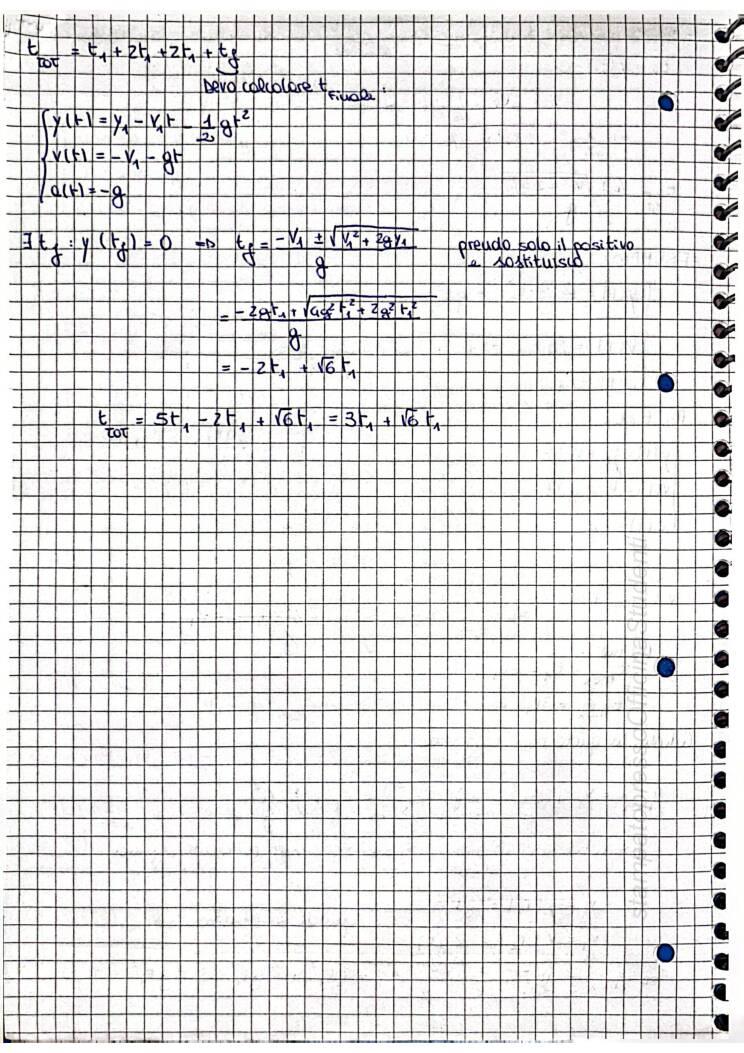 t_TOT = t₁ + 2t₁ + 2t₁ + t_f
Devo calcolare t_Finale.
y(t) = y₁ - V₁t - 1/2 gt²
v(t) = -V₁ - gt
a(t) = -g
∃ t_f : y(t_f) = 0 => t_f = (-V₁ ± √(V₁² + 2gy₁))/g prendo solo il positivo
e sostituisco
= (-2gt₁ + √(4g²t₁² + 2g²t₁²))/g
= -2t₁ + √6 t₁
t_TOT = 5t₁ - 2t₁ + √6 t₁ = 3t₁ + √6 t₁
stampato presso Officine Studenti